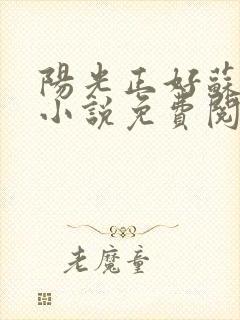 陽光正好蘇
小說免費閱
老魔童